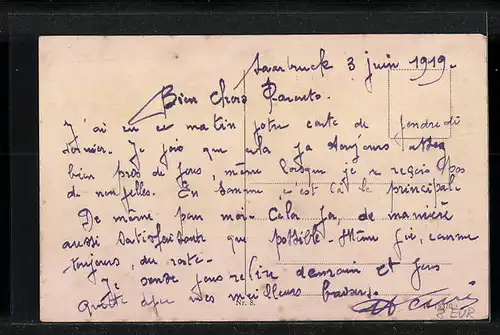 Saarbruck 3 juin 1919.
Bien chers Parents.
J'ai eu ce matin votre carte de vendredi
dernier. Je vois que cela va toujours assez
bien près de vous, même lorsque je ne reçois pas
de nouvelles. En somme c'est là le principal.
De même pour moi. Cela va, de manière
aussi satisfaisante que possible. comme
toujours, du reste.
Je pense vous relire demain et vous
quitte avec mes meilleurs baisers.
Nr. 8.
8 EUR